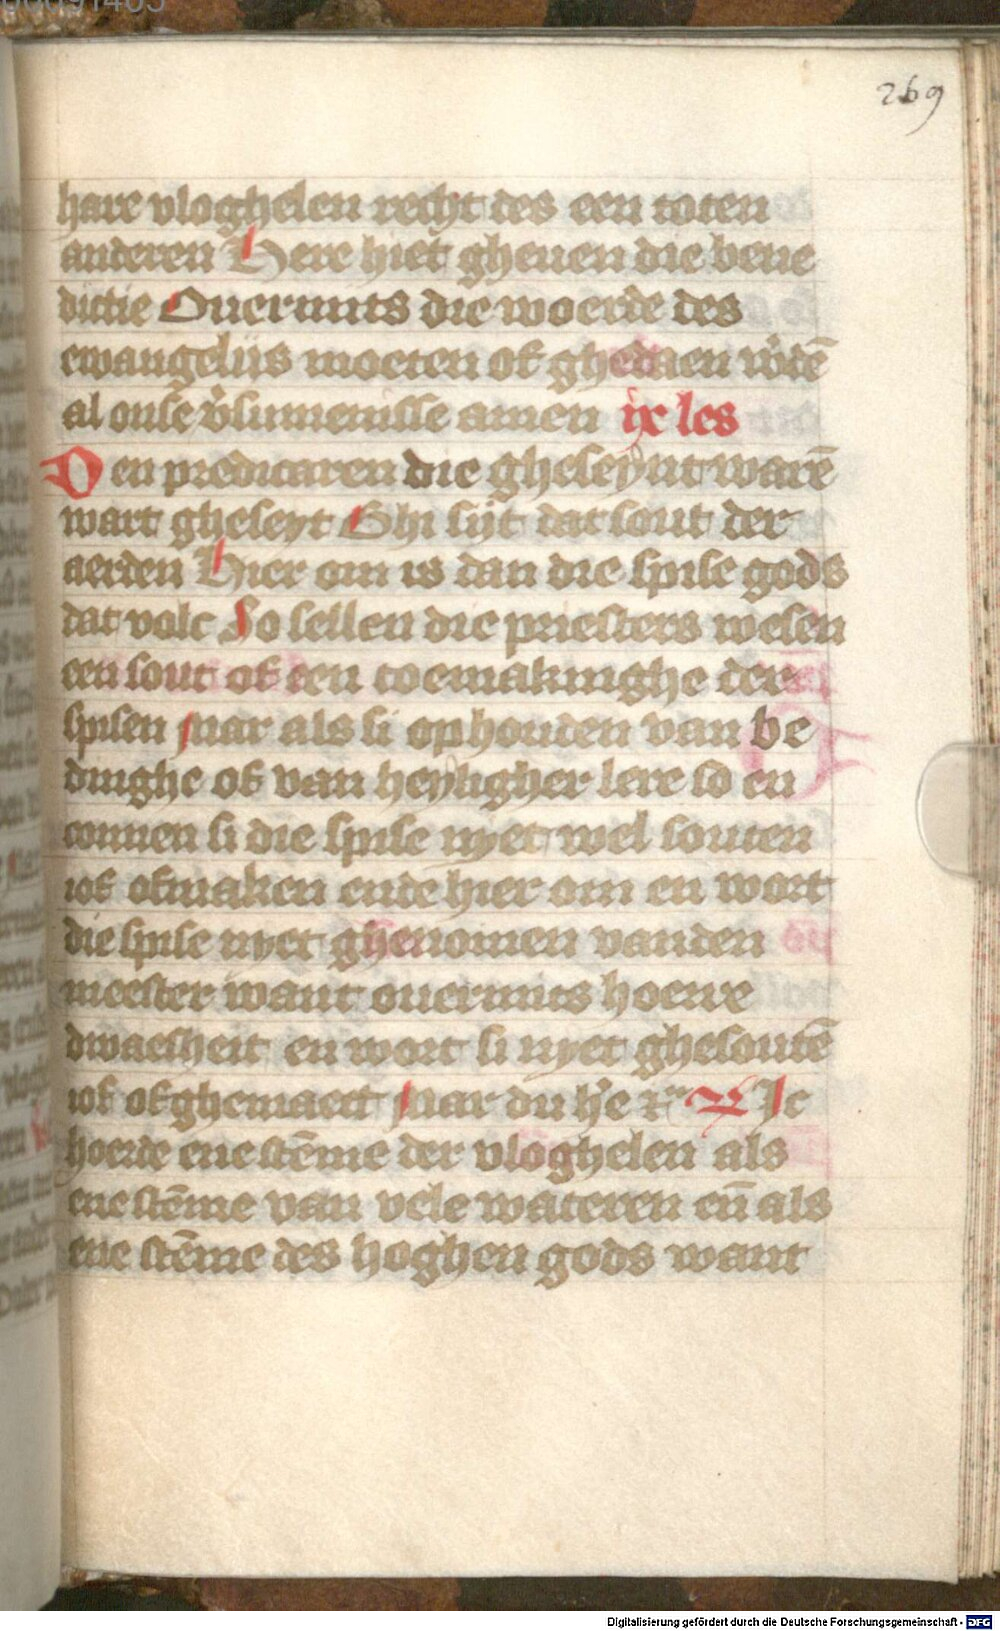 269
hare vloghelen recht des een toten
anderen Here hiet gheuen die bene
dictie Ouermits die woerde des
ewangeliis moeten of ghedaen w'dē
al onse v'sumenisse amen ix les
Den predicaren die gheseynt warē
wart gheseyt Ghi sijt dat sout der
aerden Hier om is dan die spise gods
dat volc So sellen die priesters wesen
een sout of een toemakinghe der
spisen Mar als si ophouden van be
dinghe of van heyligher lere so en
connen si die spise nyet wel souten
iof ofmaken ende hier om en wort
die spise nyet ghenomen vanden
meester want ouermits hoerre
dwaesheit en wort si nyet ghesoutē
iof ofghemaect Mar du h'e Ic
hoerde ene stēme der vloghelen als
ene stēme van vele wateren en̄ als
ene stēme des hoghen gods want
Digitalisierung gefördert durch die Deutsche Forschungsgemeinschaft - DFG